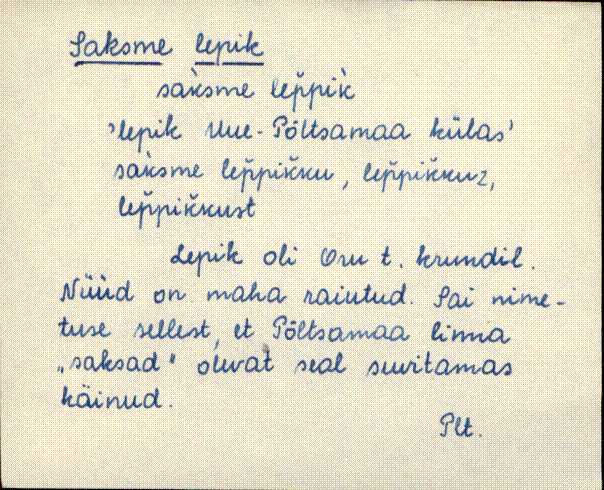 Saksme lepik
sak̀sme lep̆pik̀
'lepik Uue-Põltsamaa külas'
sak̀sme lep̆pik̆ku, lep̆pik̆kuz,
lep̆pik̆kust
Lepik oli Oru t. krundil.
Nüüd on maha raiutud. Sai nime-
tuse sellest, et Põltsamaa linna
„saksad" olevat seal suvitamas
käinud.
Plt.